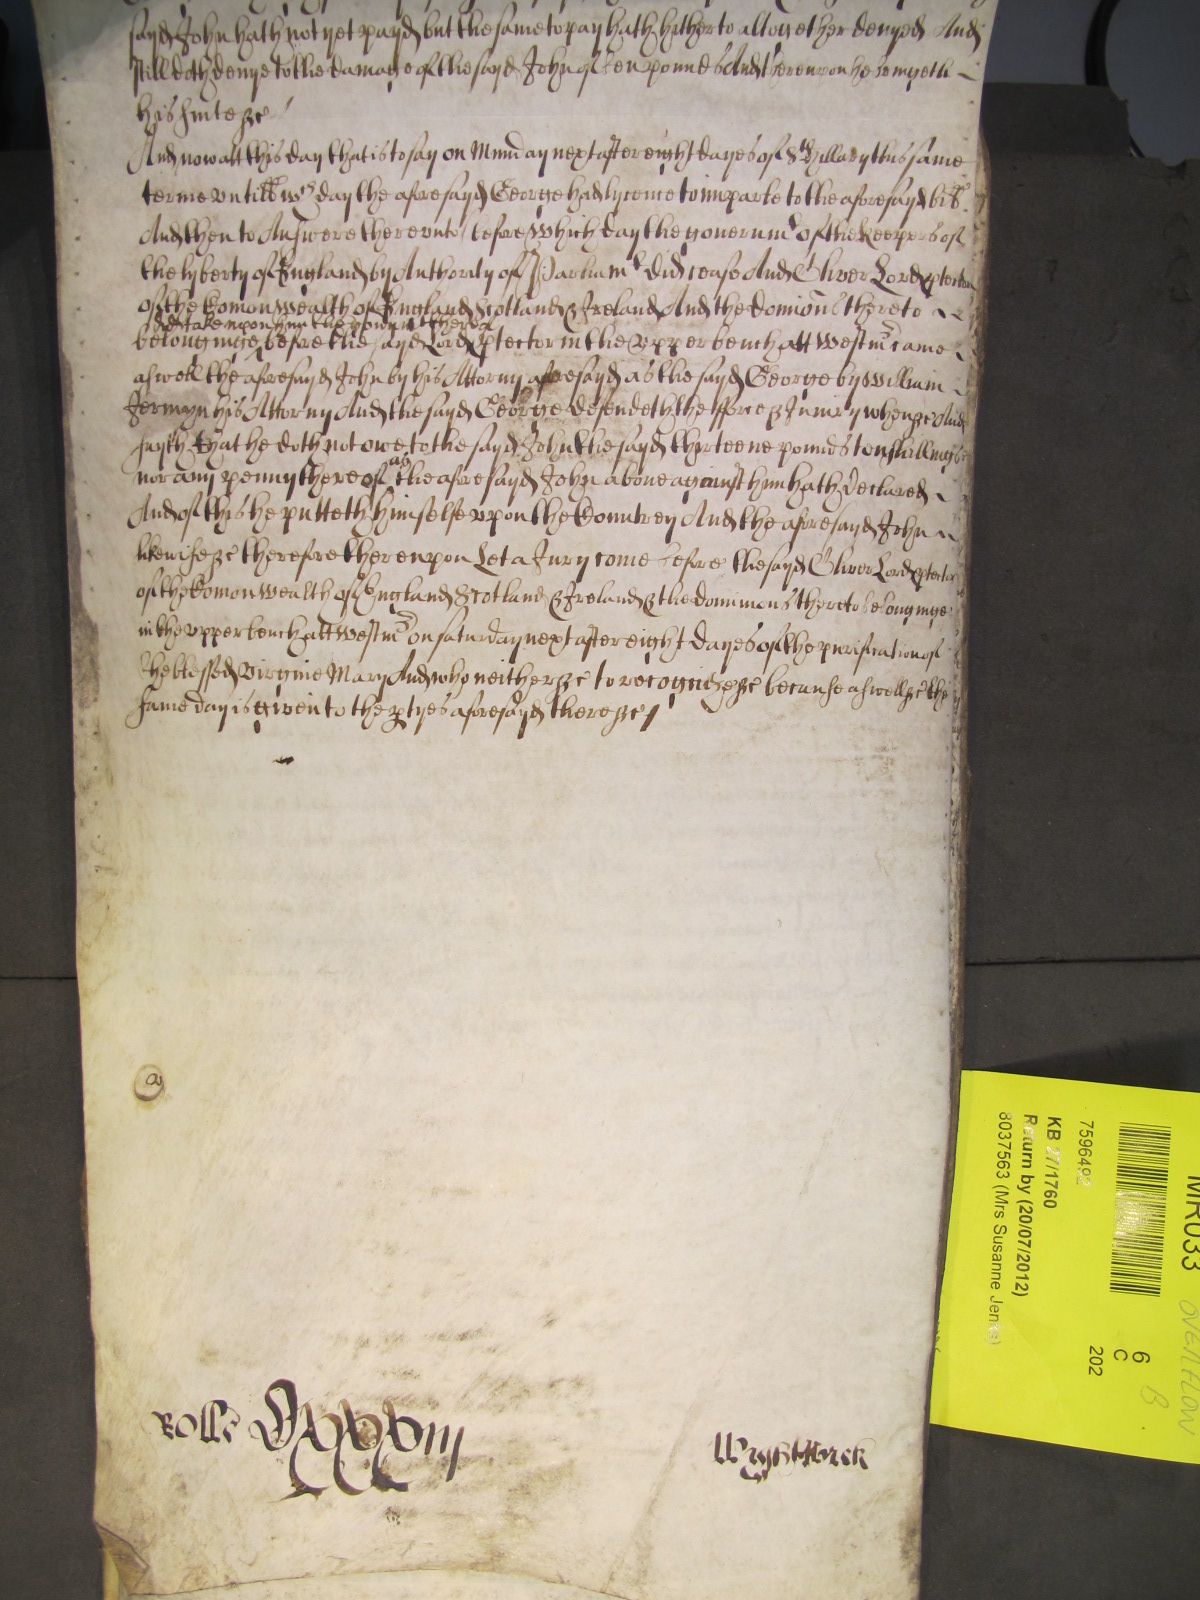 sayd John hath not yet payd but the same to pay hath hitherto altogether denyed And
still doth denye to the damage of the sayd John of ten pounds And thereupon he bringeth
his suite &c
And now att this day that is to say on Munday next after eight dayes of St Hillary this same
terme untill wch day the aforesayd George had lycence to imparle to the aforesayd bill
And then to Answere thereunto before which day the governmt of the Keepers of
the lyberty of England by Authority of Parliamt did cease And Oliver Lord Ptector
of the Comonwealth of England Scotland & Ireland And the dominions thereto
did take upon him the governmt thereof
belonginge before the sayd Lord Ptector in the upper bench att Westmr came
aswell the aforesayd John by his Attorny aforesayd as the sayd George by William
Jermyn his Attorny And the sayd George defendeth the fforce & Iniury when &c And
sayth that he doth not owe to the sayd John the sayd thirteene pounds ten shillings
nor any penny thereof as the aforesayd John above against him hath declared
And of this he putteth himselfe upon the Countrey And the aforesayd John
likewise &c therefore thereupon Let a Jury come before the sayd Oliver Lord Ptector
of the Comonwealth of England Scotland & Ireland & the dominions thereto belonginge
in the upper bench att Westmr on saturday next after eight dayes of the purification of
the blessed Virgine Mary And who neither &c to recognize &c because aswell &c the
same day is given to the ptyes aforesayd there &c
Rolle
Wightwick
MR033
OVERFLOW
6
C
B
202
KB 27/1760
Return by (20/07/2012)
8037563 (Mrs Susanne Jenks)